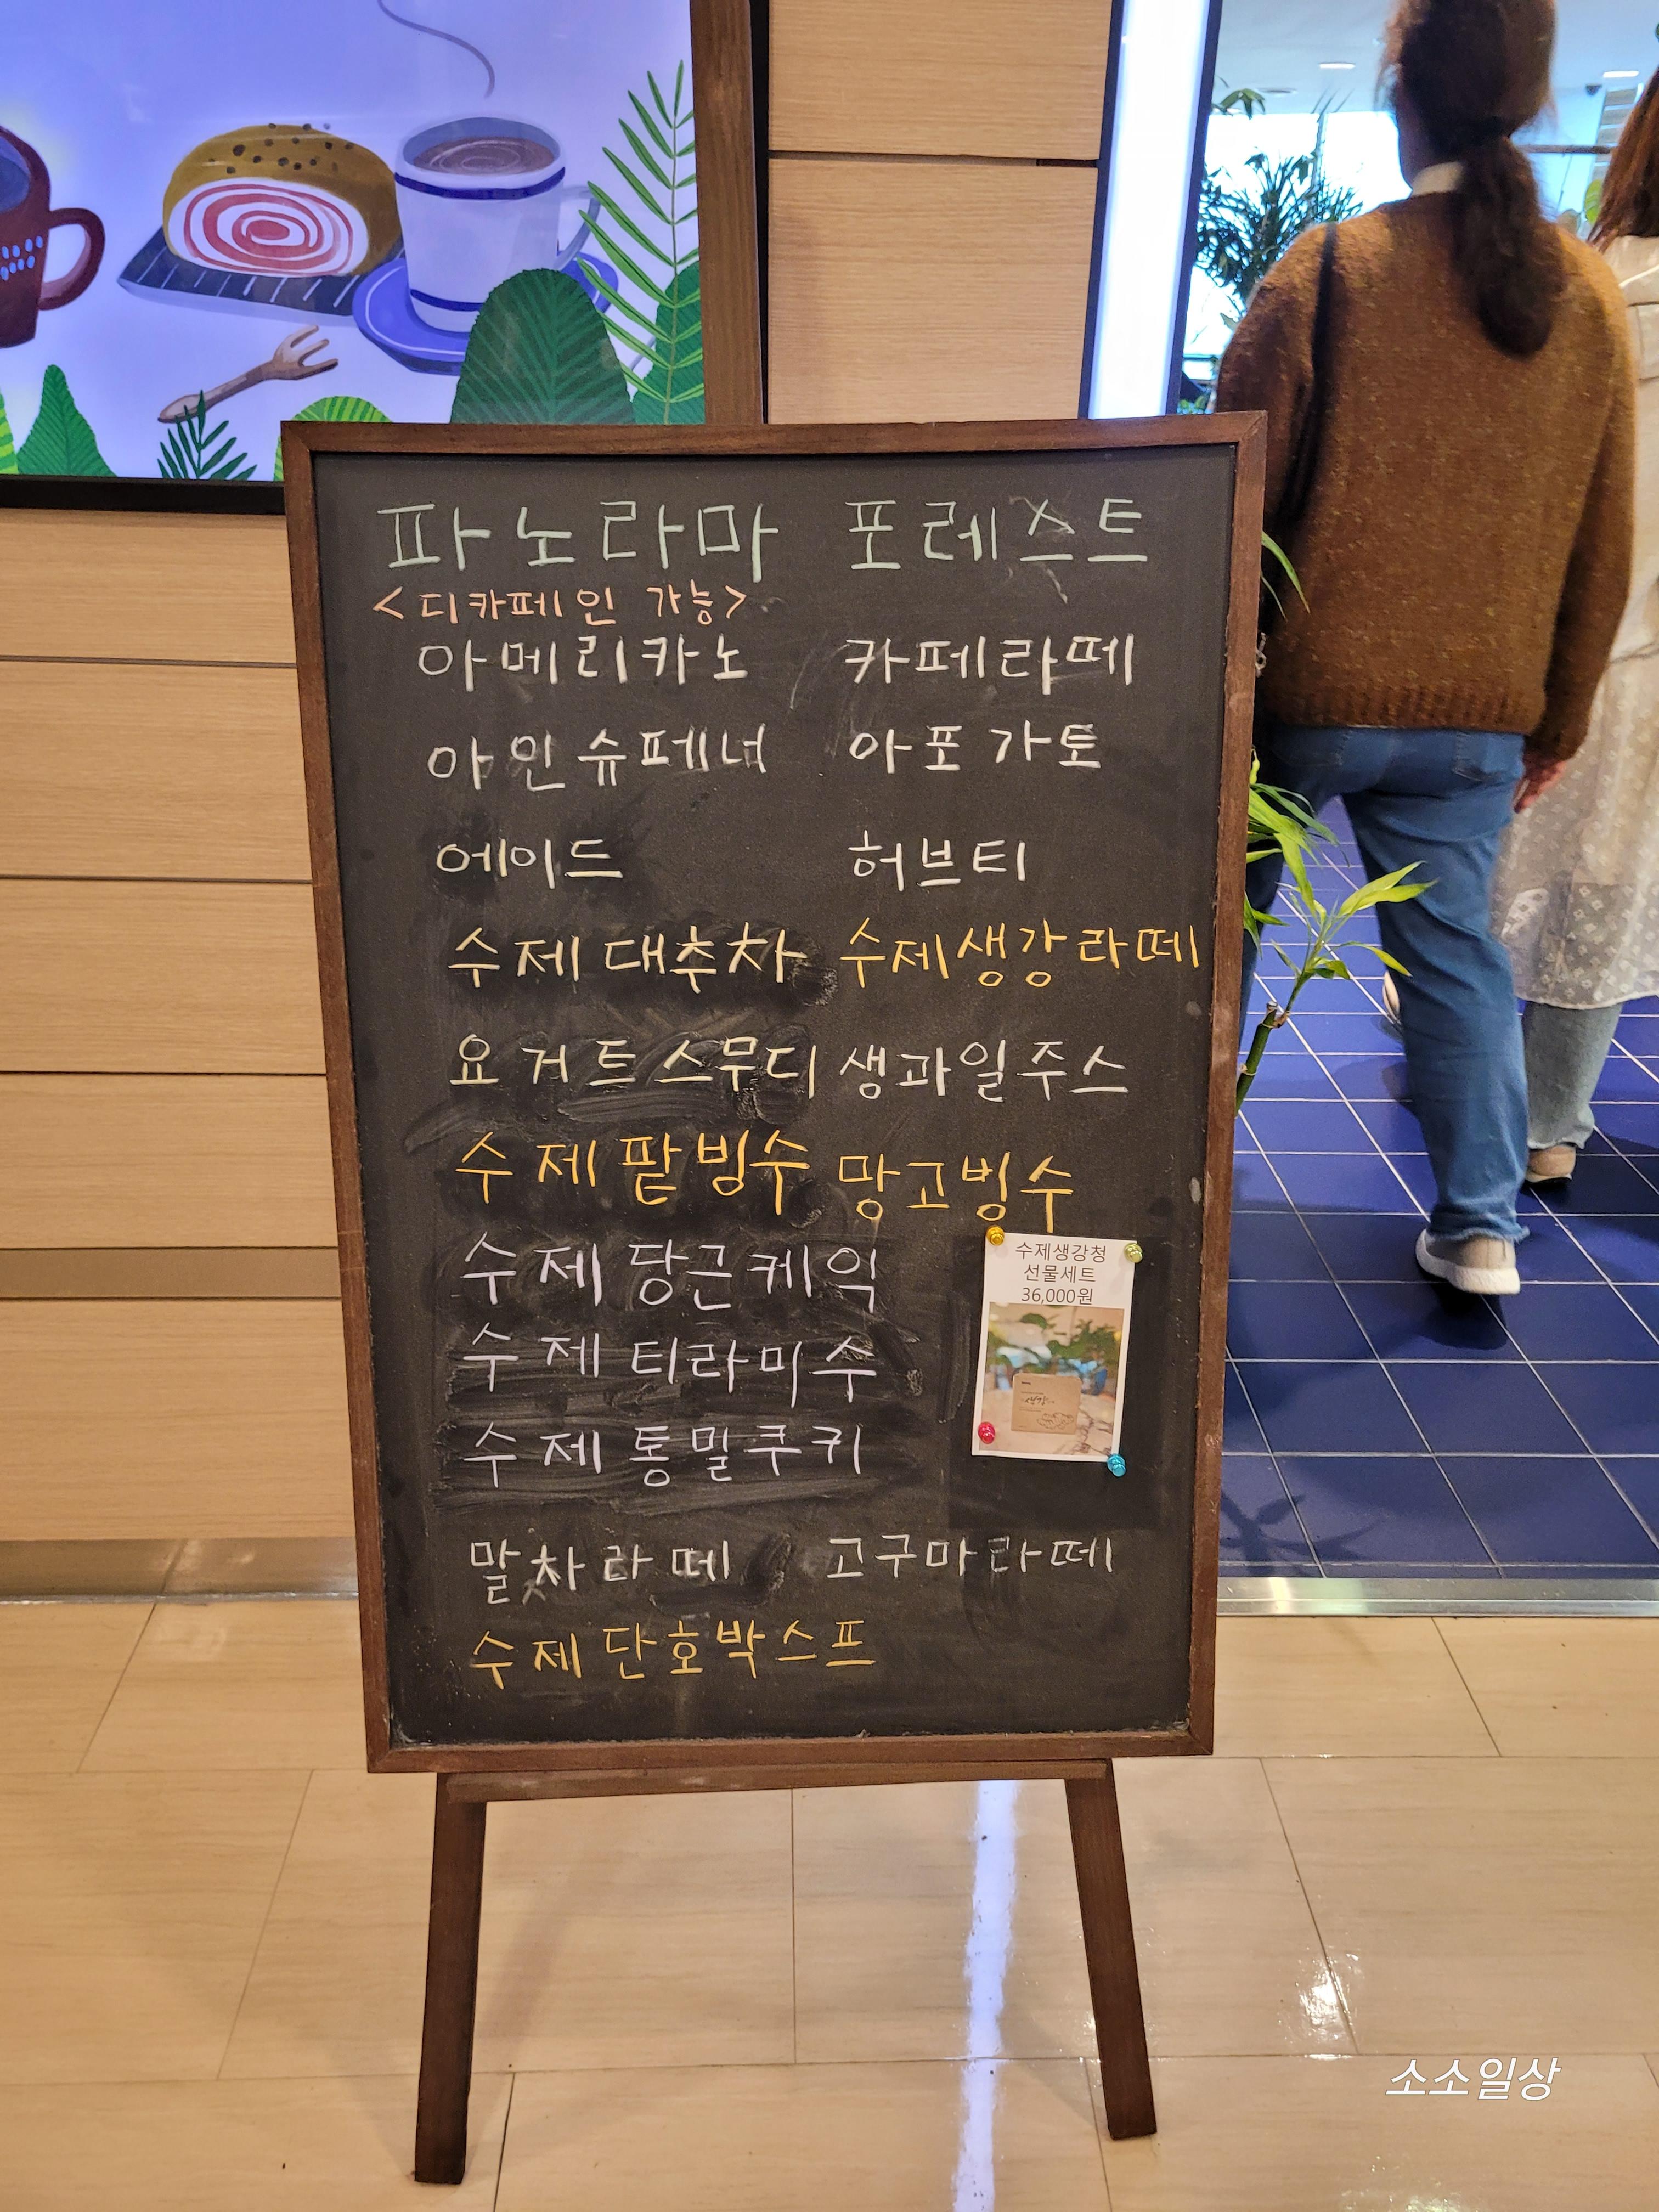 파노라마 포레스트
<디카페인 가능>
아메리카노 카페라떼
아인슈페너 아포가토
에이드 허브티
수제대추차 수제생강라떼
요거트스무디 생과일주스
수제팥빙수 망고빙수
수제당근케익
수제티라미수
수제통밀쿠키
수제생강청
선물세트
36,000원
말차라떼 고구마라떼
수제단호박스프
소소일상